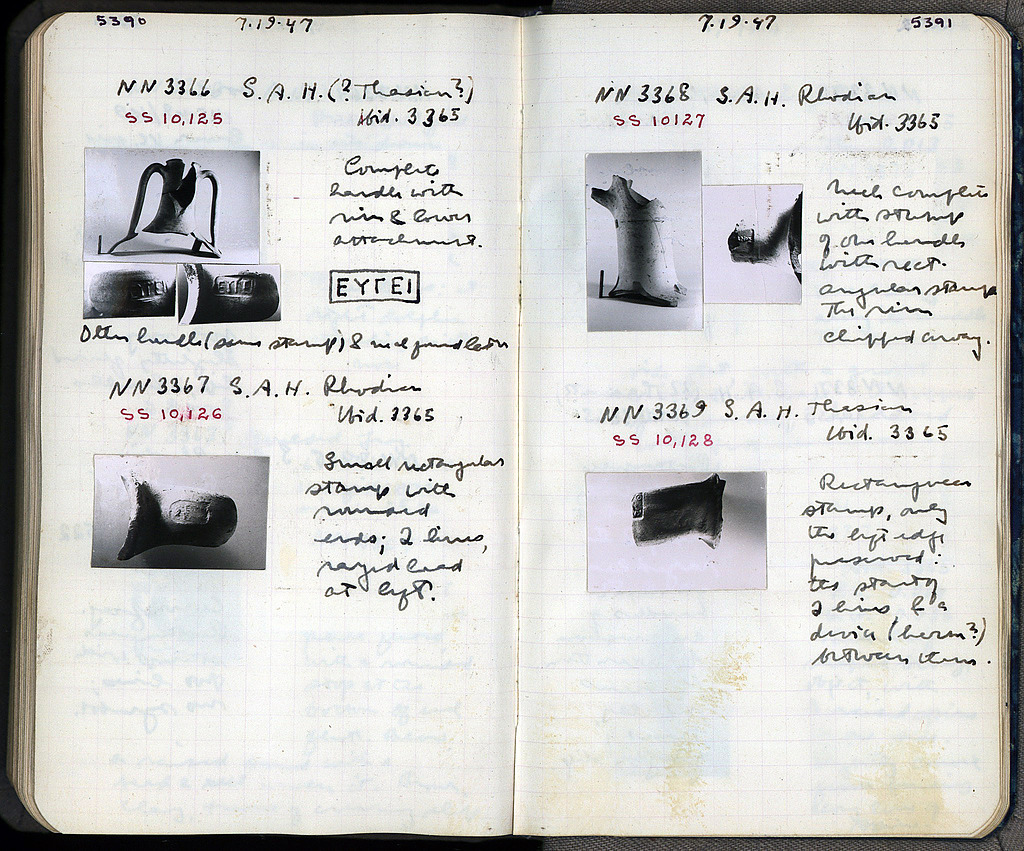 5390
7.19.47
NN 3366 S.A.H. (? Thasian?)
SS 10,125 Ibid. 3365
Complete
handle with
rim & lower
attachment.
ΕΥΓΕΙ
Other handle (same stamp) & neck found later
NN 3367 S.A.H. Rhodian
SS 10,126 Ibid. 3365
Small rectangular
stamp with
rounded
ends; 2 lines,
rayed head
at left.
7.19.47
5391
NN 3368 S.A.H. Rhodian
SS 10127 Ibid. 3365
Neck complete
with stump
of one handle
with rect-
angular stamp
The rim
chipped away.
NN 3369 S.A.H. Thasian
SS 10,128 Ibid. 3365
Rectangular
stamp, only
the left edge
preserved:
the start of
2 lines & a
device (herm?)
between them.